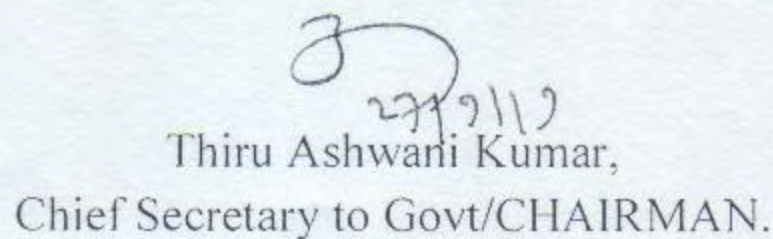 Thiru Ashwani Kumar,
Chief Secretary to Govt/CHAIRMAN.